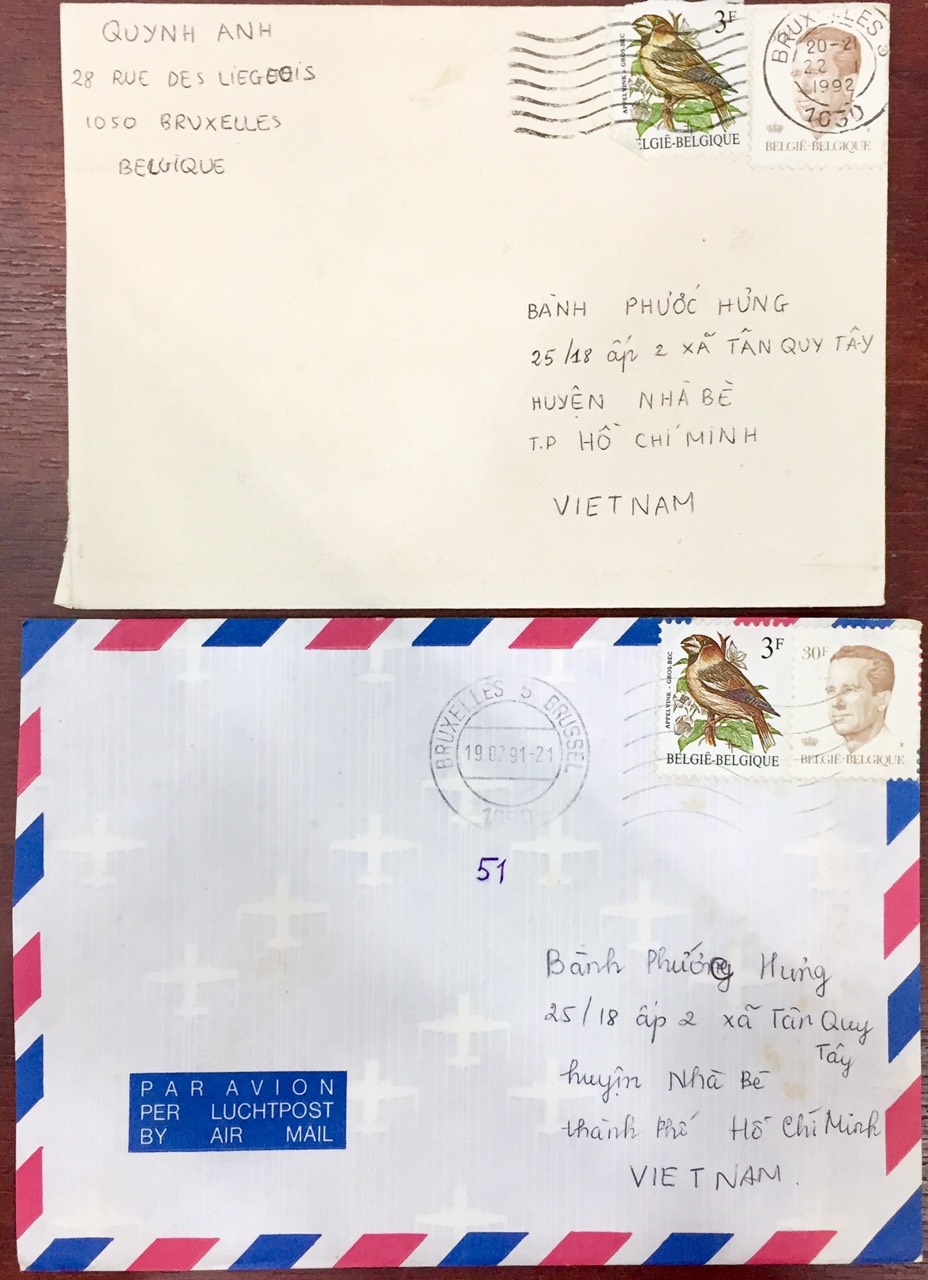 QUYNH ANH
28 RUE DES LIEGEOIS
1050 BRUXELLES
BELGIQUE
3F
APPELVINK - GROS-BEC
ELGIË-BELGIQUE
BELGIË-BELGIQUE
BRUXELLES 5
20-21
22
1992
1050
BÀNH PHƯỚC HƯNG
25/18 ấp 2 XÃ TÂN QUY TÂY
HUYỆN NHÀ BÈ
T.P HỒ CHÍ MINH
VIETNAM
3F
APPELVINK - GROS-BEC
BELGIË-BELGIQUE
30F
BELGIË-BELGIQUE
BRUXELLES 5 BRUSSEL
19.02.91-21
51
Bành Phước Hưng
25/18 ấp 2 xã Tân Quy
Tây
huyện Nhà Bè
thành phố Hồ Chí Minh
VIETNAM.
PAR AVION
PER LUCHTPOST
BY AIR MAIL